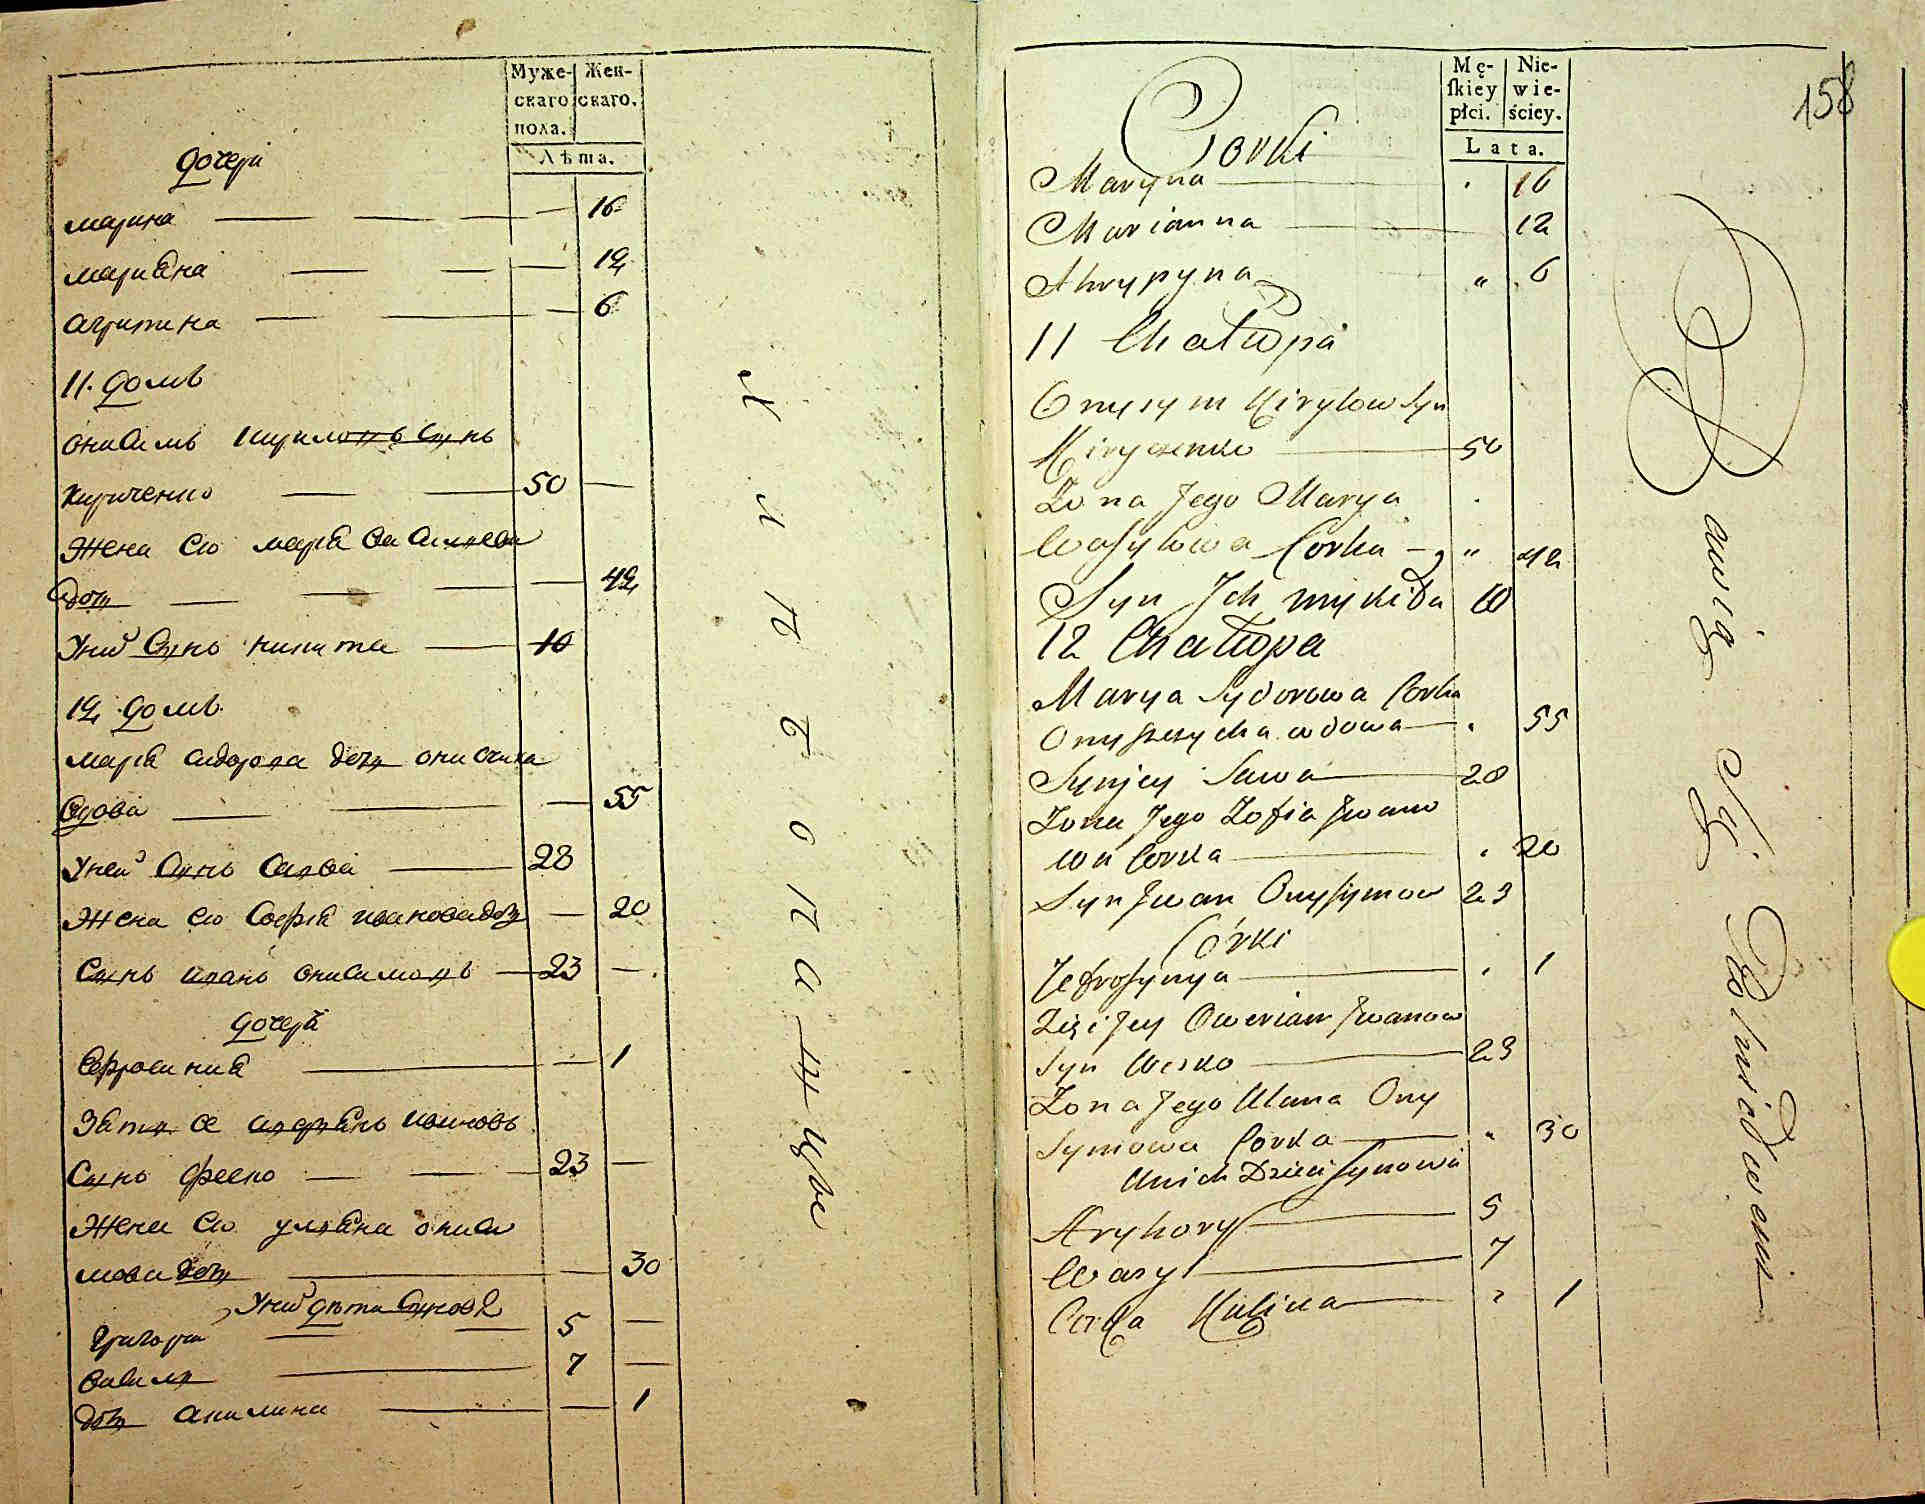 Муже-
скаго
пола.
Жен-
скаго.
Лѣта.
дочери
марина 16
мариана 12
агрипина 6
11. домъ
онисимъ кириловъ сынъ
Кириченко 50
Жена его мария василева
дочь 42
Унихъ сынъ никита 10
12 домъ
мария сидорова дочь онисчиха
вдова 55
Унеи сынъ сава 28
Жена его софия иванова дочь 20
Сынъ иванъ онисимовъ 23
дочери
Ефросиния 1
Зять ее аверианъ ивановъ
Сынъ феско 23
Жена его улиана ониси
мова дочь 30
Унихъ дети синовя
григори 5
василь 7
дочь акилина 1
158
Mę-
skiey
płci.
Nie-
wie-
ściey.
Lata.
Corki
Maryna 16
Marianna 12
Ahrypyna 6
11 Chałupa
Onysym Kiryłow Syn
Kiryczenko 50
Żona Jego Marya
Wasylowa Corka 42
Syn Ich Mykita 10
12 Chałupa
Marya Sydorowa Corka
Onyszczycha wdowa 55
Syn jey Sawa 28
Żona Jego Zofia Iwano
wa Corka 20
Syn Iwan Onysymow 23
Córki
Jefrosynya 1
Zięć jey Owerian Iwanow
Syn Wesko 23
Żona Jego Ulana Ony
symowa Corka 30
Unich Dzieci Synowie
Hryhory 5
Wasyl 7
Corka Kulina 1